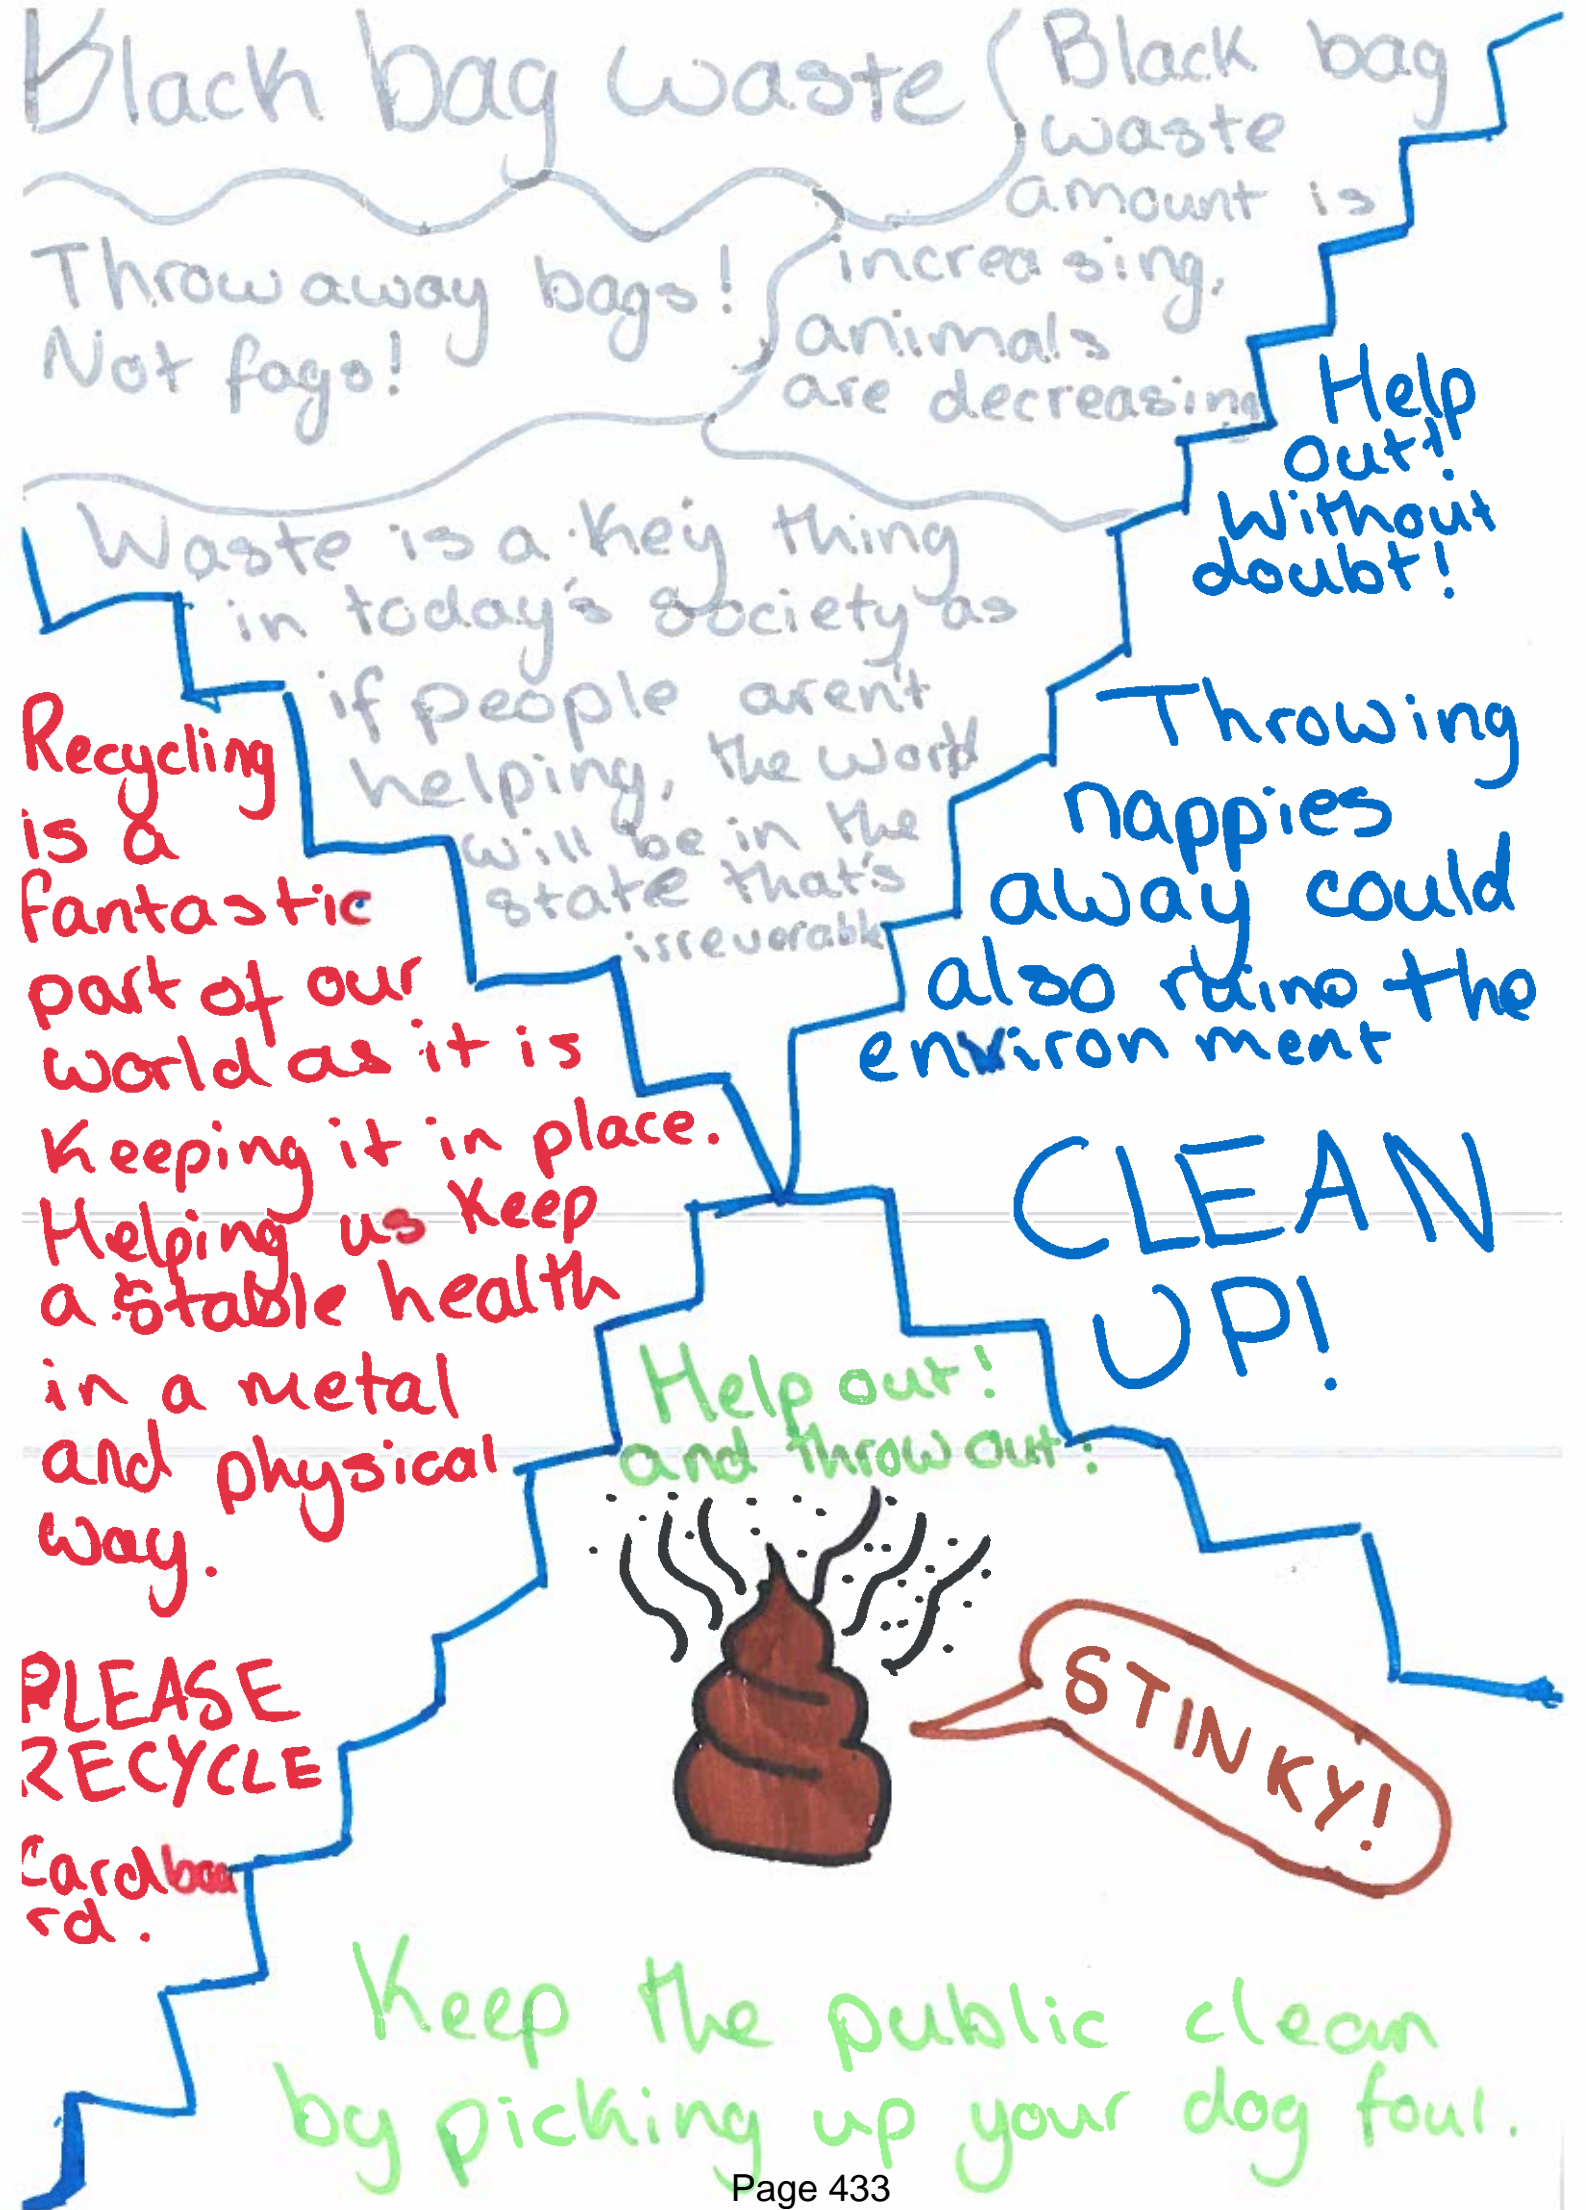 Black bag waste
Black bag
waste
amount is
increasing,
animals
are decreasing
Throw away bags!
Not fags!
Waste is a key thing
in today's society as
if people aren't
helping, the world
will be in the
state that's
irreverable
Help
out!
Without
doubt!
Throwing
nappies
away could
also ruine the
environment
CLEAN
UP!
Recycling
is a
fantastic
part of our
world as it is
Keeping it in place.
Helping us Keep
a stable health
in a metal
and physical
way.
PLEASE
RECYCLE
Cardboa
rd.
Help out!
and throw out:
STINKY!
Keep the public clean
by picking up your dog foul.
Page 433